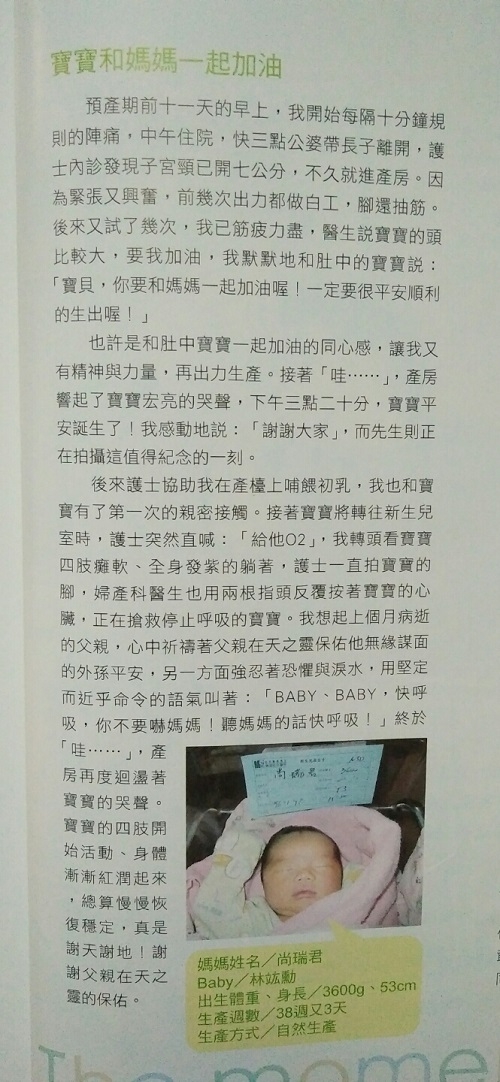 寶寶和媽媽一起加油
預產期前十一天的早上，我開始每隔十分鐘規
則的陣痛，中午住院，快三點公婆帶長子離開，護
士內診發現子宮頸已開七公分，不久就進產房。因
為緊張又興奮，前幾次出力都做白工，腳還抽筋。
後來又試了幾次，我已筋疲力盡，醫生說寶寶的頭
比較大，要我加油，我默默地和肚中的寶寶說：
「寶貝，你要和媽媽一起加油喔！一定要很平安順利
的生出喔！」
也許是和肚中寶寶一起加油的同心感，讓我又
有精神與力量，再出力生產。接著「哇……」，產房
響起了寶寶宏亮的哭聲，下午三點二十分，寶寶平
安誕生了！我感動地說：「謝謝大家」，而先生則正
在拍攝這值得紀念的一刻。
後來護士協助我在產檯上哺餵初乳，我也和寶
寶有了第一次的親密接觸。接著寶寶將轉往新生兒
室時，護士突然直喊：「給他O2」，我轉頭看寶寶
四肢癱軟、全身發紫的躺著，護士一直拍寶寶的
腳，婦產科醫生也用兩根指頭反覆按著寶寶的心
臟，正在搶救停止呼吸的寶寶。我想起上個月病逝
的父親，心中祈禱著父親在天之靈保佑他無緣謀面
的外孫平安，另一方面強忍著恐懼與淚水，用堅定
而近乎命令的語氣叫著：「BABY、BABY，快呼
吸，你不要嚇媽媽！聽媽媽的話快呼吸！」終於
「哇……」，產
房再度迴盪著
寶寶的哭聲。
寶寶的四肢開
始活動、身體
漸漸紅潤起來
，總算慢慢恢
復穩定，真是
謝天謝地！謝
謝父親在天之
靈的保佑。
尚瑞君
媽媽姓名／尚瑞君
Baby／林竑勳
出生體重、身長／3600g、53cm
生產週數／38週又3天
生產方式／自然生產
The mome